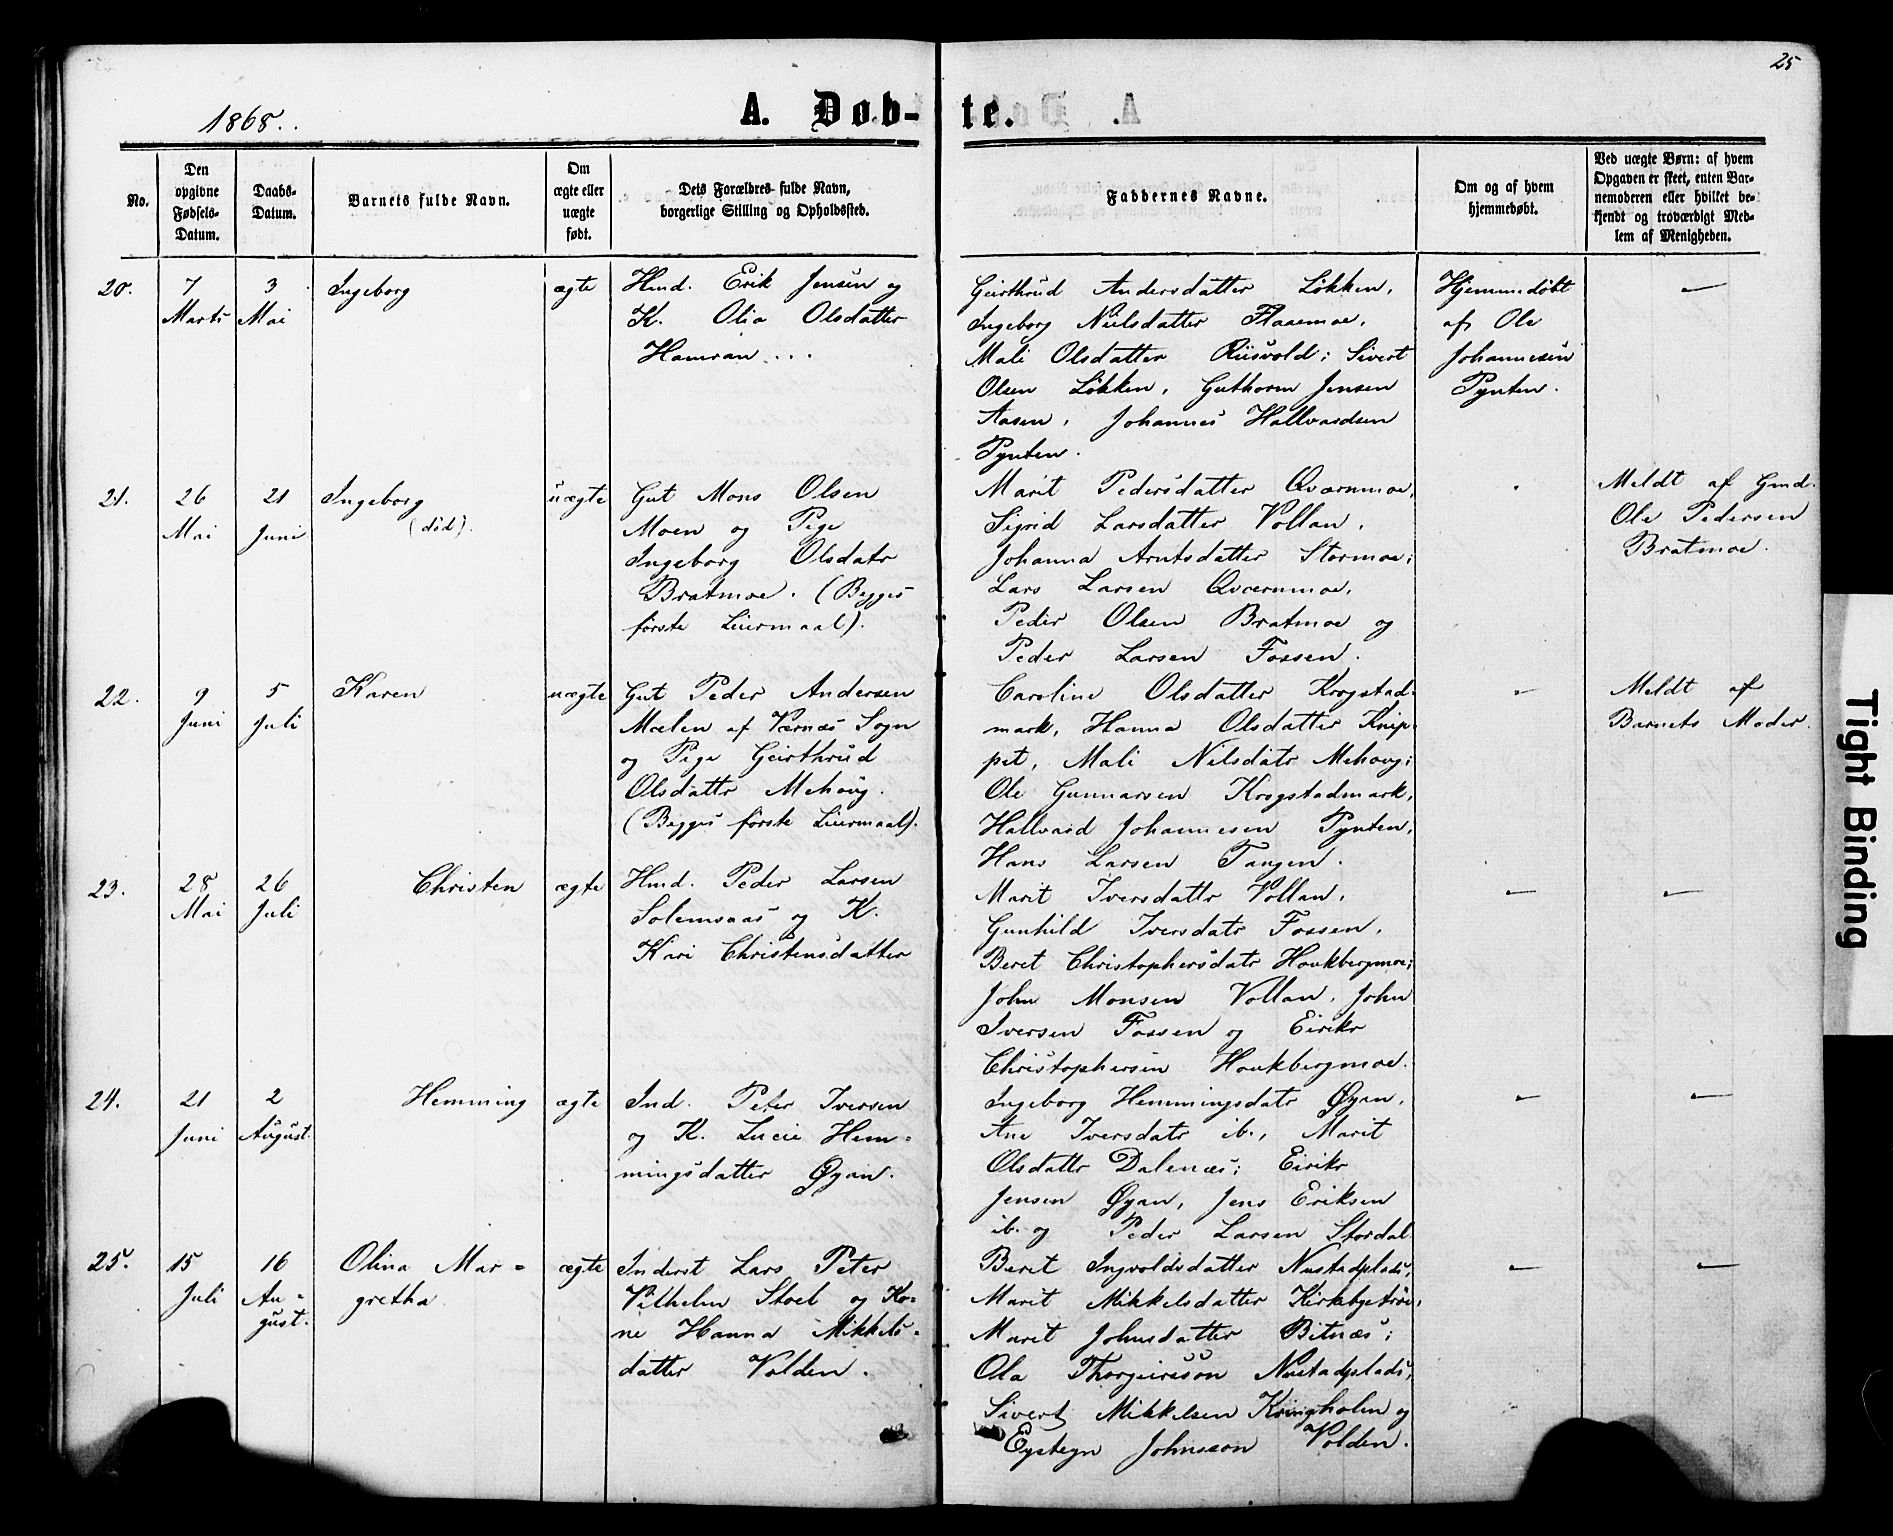 25
1868.
A. Døb-te.
No.
Den
opgivne
Fødsels-
Datum.
Daabs-
Datum.
Barnets fulde Navn.
Om
ægte eller
uægte
født.
Dets Forældres fulde Navn,
borgerlige Stilling og Opholdssted.
Faddernes Navne.
Om og af hvem
hjemmedøbt.
Ved uægte Børn: af hvem
Opgaven er skeet, enten Bar-
nemoderen eller hvilket be-
kjendt og troværdigt Med-
lem af Menigheden.
20.
7
Marts
3
Mai
Ingeborg
ægte
Hmd. Erik Jensen og
K. Olia Olsdatter
Hamran ...
Geirthrud Andersdatter Løkken,
Ingeborg Nielsdatter Flaaemoe,
Mali Olsdatter Riisvold; Sivert
Olsen Løkken, Guthorm Jensen
Aasen, Johannes Hallvardsen
Pynten.
Hjemmedøbt
af Ole
Johannesen
Pynten.
—
21.
26
Mai
21
Juni
Ingeborg
(død).
uægte
Gut Mons Olsen
Moen og Pige
Ingeborg Olsdatr
Bratmoe. (Begges
første Leiermaal).
Marit Pedersdatter Qværnmoe,
Sigrid Larsdatter Vollan,
Johanna Arntsdatter Stormoe;
Lars Larsen Qværnmoe,
Peder Olsen Bratmoe og
Peder Larsen Fossen.
Meldt af Gmd.
Ole Pedersen
Bratmoe.
22.
9
Juni
5
Juli
Karen
uægte
Gut Peder Andersen
Mælen af Værnæs Sogn
og Pige Geirthrud
Olsdattr Mehoug.
(Begges første Leiermaal).
Caroline Olsdatter Krogstad-
mark, Hanna Olsdatter Knip-
pet, Mali Nilsdatr Mehoug;
Ole Gunnarsen Krogstadmark,
Hallvard Johannesen Pynten,
Hans Larsen Tangen.
—
Meldt af
Barnets Moder.
23.
28
Mai
26
Juli
Christen
ægte
Hmd. Peder Larsen
Solemsaas og K.
Kari Christensdatter
Marit Iversdattr Vollan,
Gunhild Iversdatr Fossen,
Beret Christophersdatr Houkbergmoe;
John Monsen Vollan, John
Iversen Fossen og Eirikr
Christophersen Houkbergmoe.
—
—
24.
21
Juni
2
August.
Hemming
ægte
Ind. Peter Iversen
og K. Lucie Hem-
mingsdatter Øyan.
Ingeborg Hemmingsdatr Øyan,
Ane Iversdatr ib., Marit
Olsdattr Dalenæs; Eirikr
Jensen Øyan, Jens Eriksen
ib. og Peder Larsen Stordal
—
—
25.
15
Juli
16
Au-
gust.
Olina Mar-
gretha
ægte
Inderst Lars Peter
Vilhelm Stoel og Ko-
ne Hanna Mikkels-
datter Volden.
Beret Ingvoldsdatter Nustadplads,
Marit Mikkelsdatter Kirkebyetrøe,
Marit Johnsdatter Bitnæs;
Ola Thorgeirsson Nustadplads,
Sivert Mikkelsen Kringholm og
Eystegn Johnsson Volden.
—
—
Tight Binding